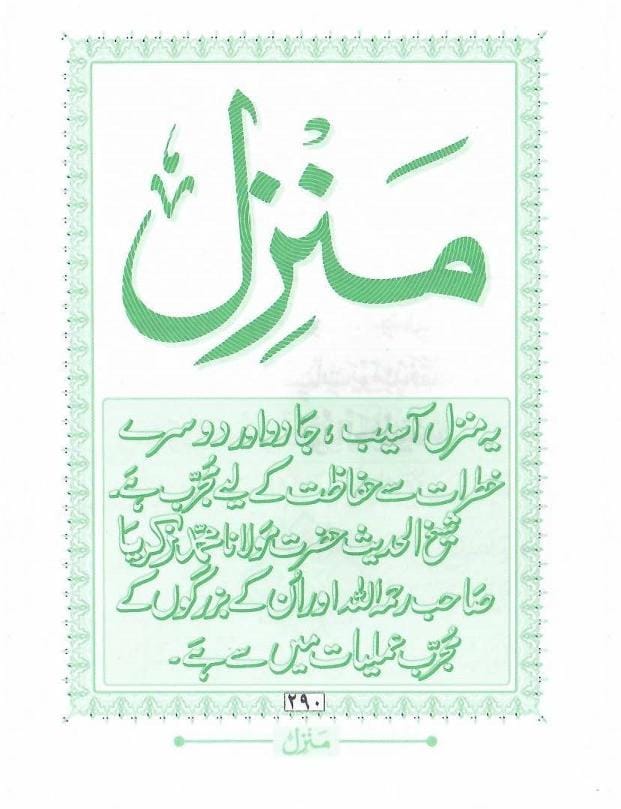 مَنْزِل
یہ منزل آسیب، جادو اور دوسرے
خطرات سے حفاظت کے لیے مُجرّب ہَے۔
شیخ الحدیث حضرت مَولانا محمّد زکریّا
صَاحب رحمہ اللہ اور اُن کے بزرگوں کے
مُجرّب عملیات میں سے ہَے۔
۲۹۰
مَنْزِل